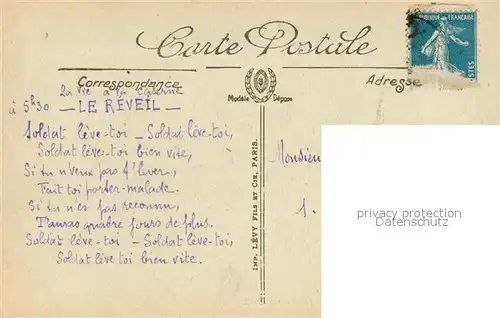 RÉPUBLIQUE FRANÇAISE
POSTES
Carte Postale
Correspondance
Adresse
Modèle Déposé
La vie à la caserne
à 5h30 — LE RÉVEIL —
Soldat lève-toi — Soldat lève-toi,
Soldat lève toi bien vite,
Si tu n'veux pas t'lever,
Fait toi porter-malade.
Si tu n'es pas reconnu,
T'auras quatre jours de plus.
Soldat lève-toi — Soldat lève-toi,
Soldat lève toi bien vite.
IMP. LÉVY FILS ET CIE, PARIS.
Monsieur
1.
privacy protection
Datenschutz